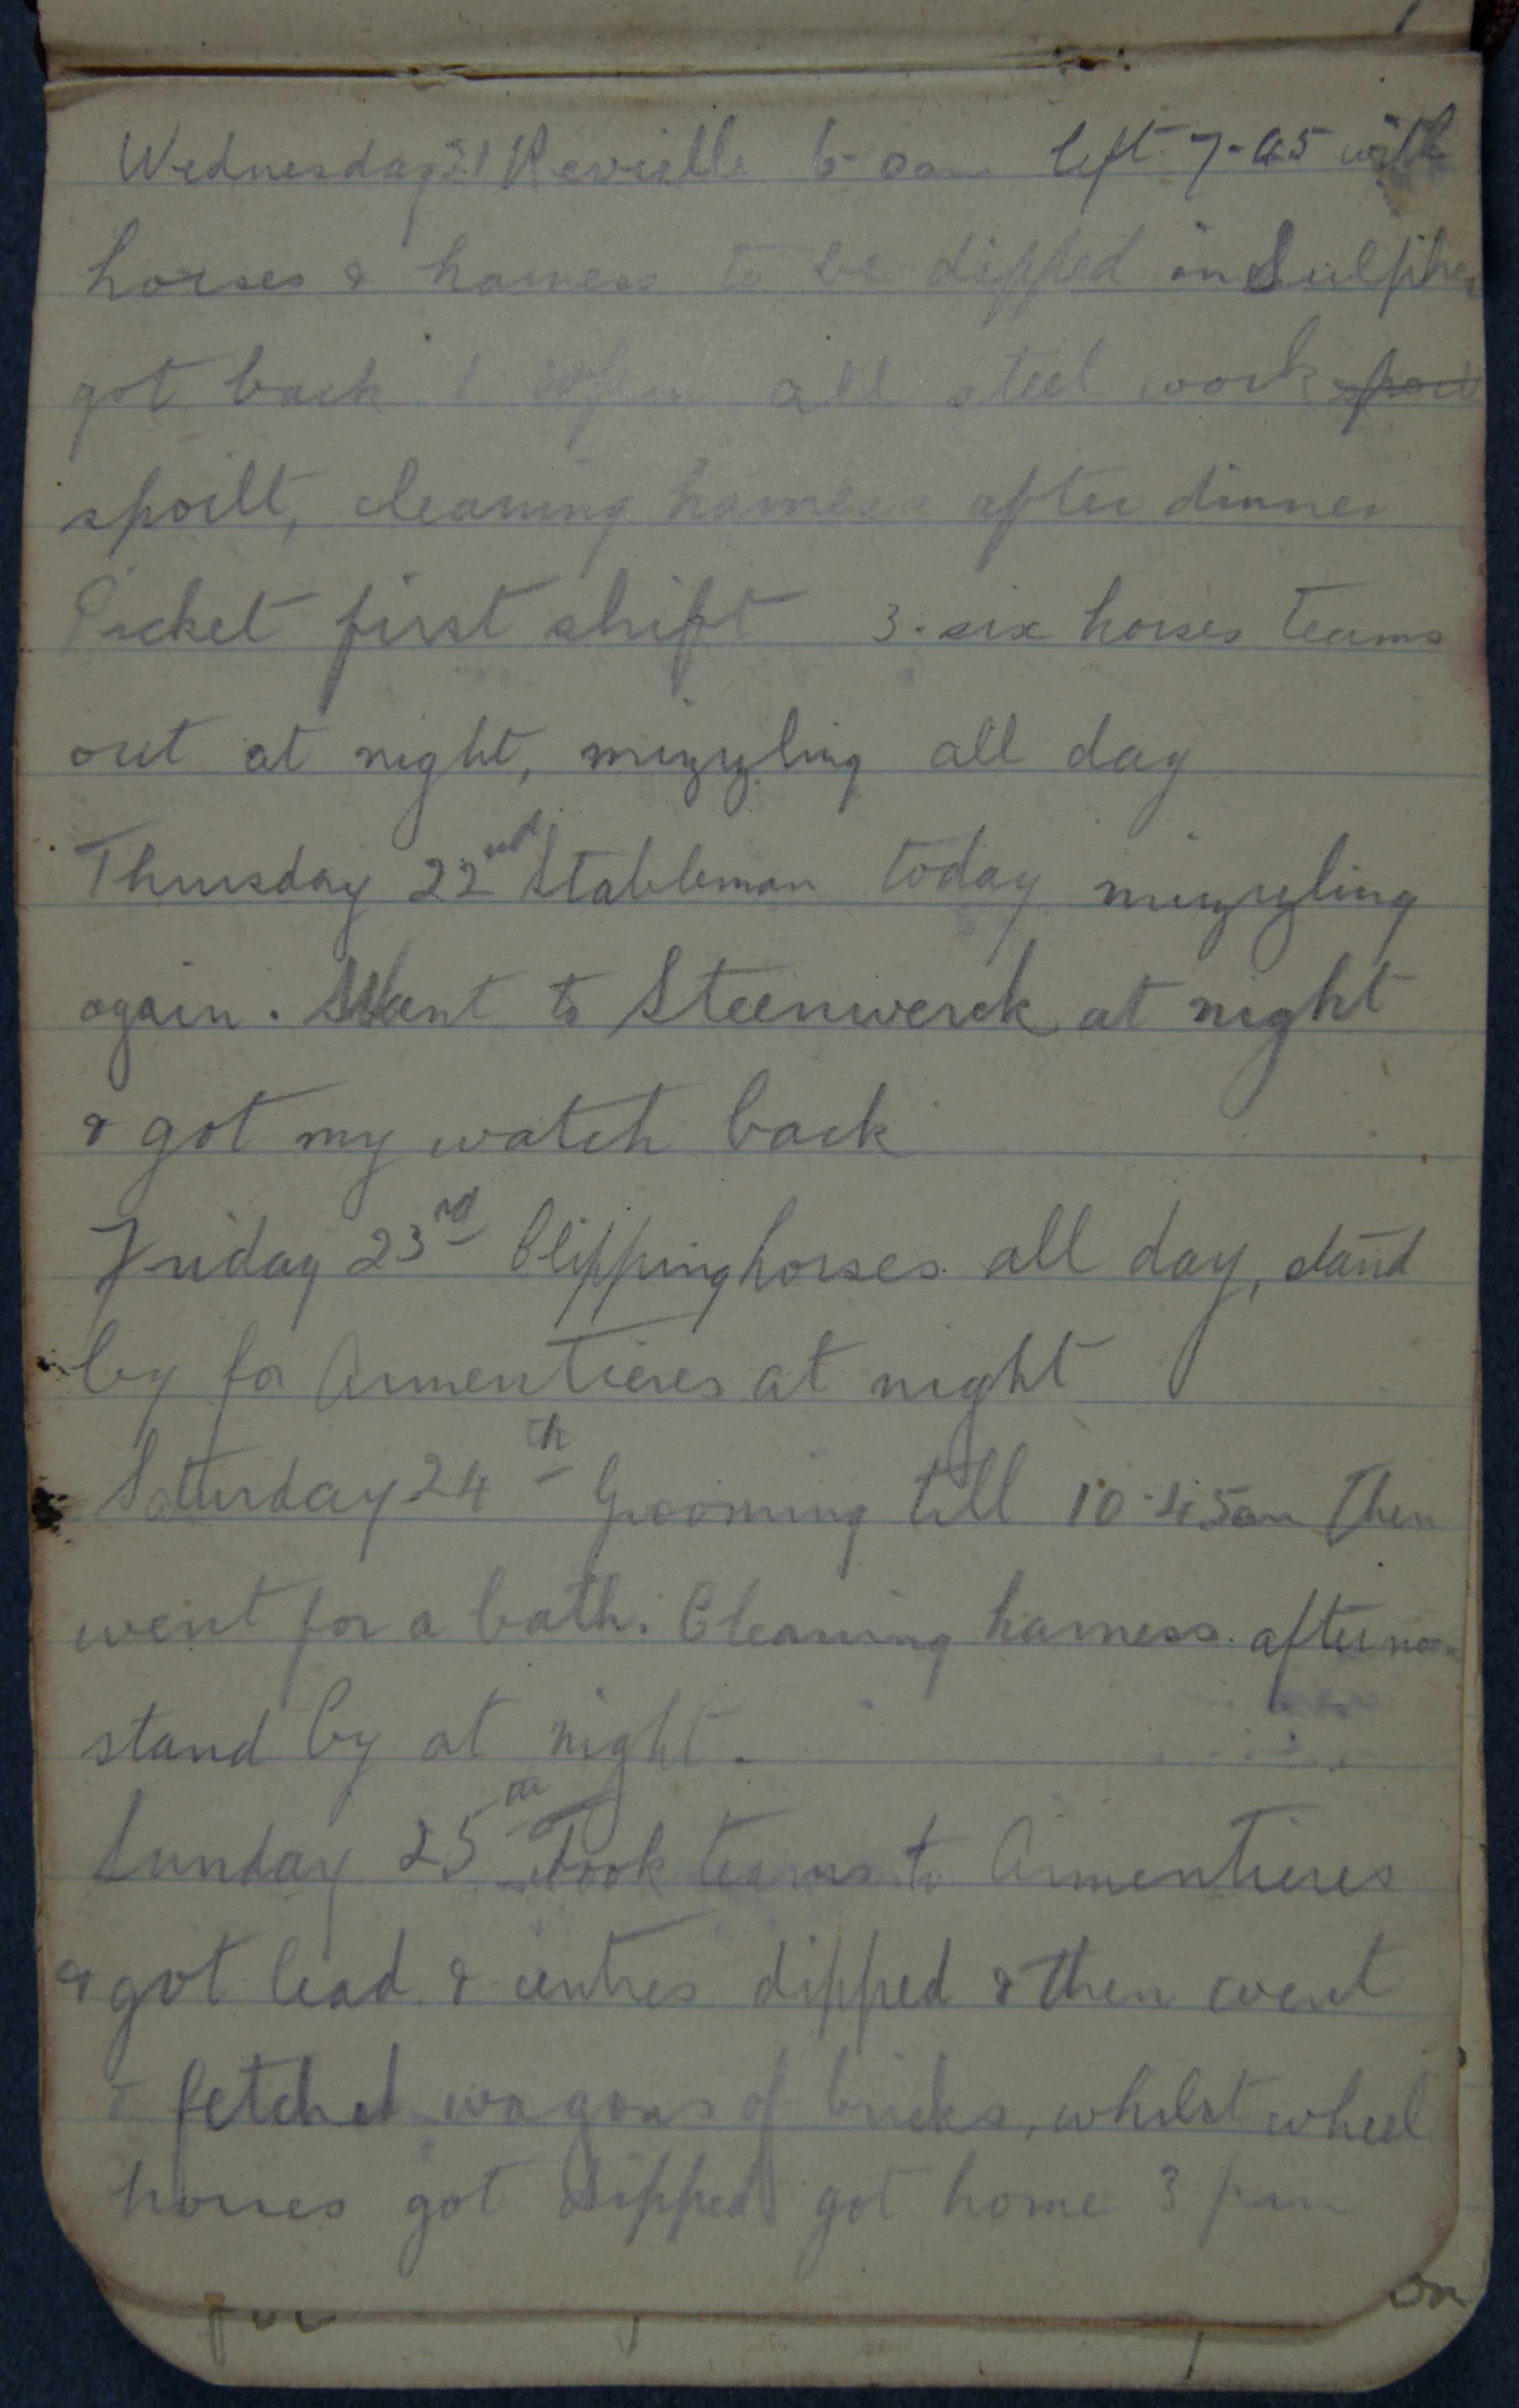 Wednesday 21 Revielle 6-0am left 7-45 with
horses & harness to be dipped in Sulpher
got back 1 30pm all steel work
spoilt, cleaning harness after dinner
Picket first shift 3. six horses teams
out at night, mizzling all day
Thursday 22nd Stableman today mizzling
again. Went to Steenwerck at night
& got my watch back
Friday 23rd Clipping horses all day, stand
by for Armentieres at night
Saturday 24th Grooming till 10.45am Then
went for a bath. Cleaning harness afternoon
stand by at night.
Sunday 25th Took teams to Armentieres
& got lead & centres dipped & then went
& fetched wagons of bricks, whilst wheel
horses got dipped got home 3 pm
on